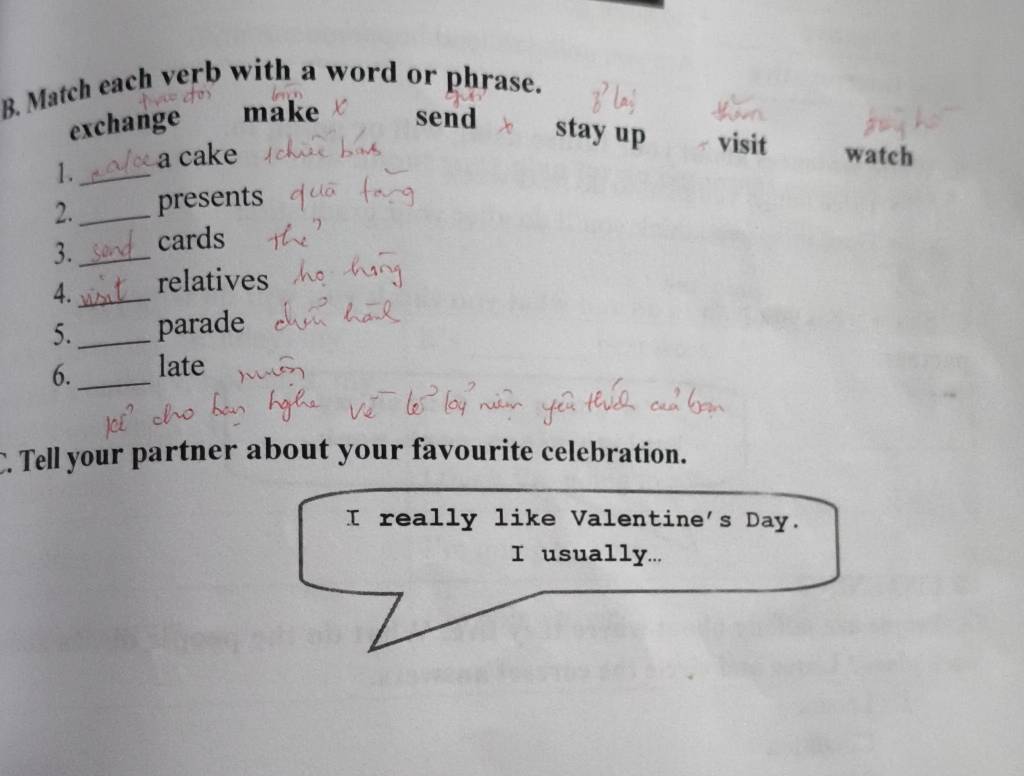 B. Match each verb with a word or phrase.
trao đổi làm gửi ở lại thăm
exchange make x send x stay up visit watch
1. make a cake chiếc bánh
2. ______ presents quà tặng
3. send cards thẻ
4. visit relatives họ hàng
5. ______ parade diễu hành
6. ______ late muộn
kể cho bạn nghe về lễ kỷ niệm yêu thích của bạn
C. Tell your partner about your favourite celebration.
I really like Valentine's Day.
I usually...